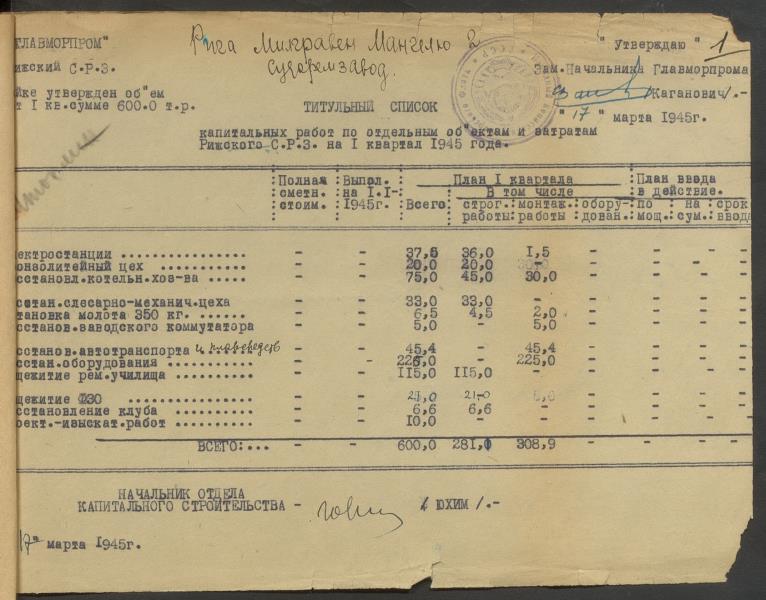 ГЛАВМОРПРОМ"
Рига Милгравен Мангелю 2
Судоремзавод.
" Утверждаю " 1
ижский С.Р.З.
Зам.Начальника Главморпрома
йке утвержден об"ем
т I кв.сумме 600.0 т.р.
/Каганович/.-
ТИТУЛЬНЫЙ СПИСОК
" 17 " марта 1945г.
капитальных работ по отдельным об"ектам и затратам
Рижского С.Р.З. на I квартал 1945 года.
Полная сметн. стоим. Выпол. на I.I- 1945г. План I квартала План ввода в действие.
Всего В том числе
строг. работы монтаж. работы обору- дован. по мощ. на сум. срок ввода
ектростанции ................ - - 37,5 36,0 1,5 - - - -
онзолитейный цех ........... - - 20,0 20,0 - - - - -
сстановл.котельн.хоз-ва ..... - - 75,0 45,0 30,0 - - - -
сстан.слесарно-механич.цеха - - 33,0 33,0 - - - - -
тановка молота 350 кг. ...... - - 6,5 4,5 2,0 - - - -
сстанов.заводского коммутатора - - 5,0 - 5,0 - - - -
сстанов.автотранспорта и - - 45,4 - 45,4 - - - -
сстан.оборудования .......... - - 225,0 - 225,0 - - - -
щежитие рем.училища ......... - - 115,0 115,0 - - - - -
щежитие ФЗО ............ - - 21,0 21-0 - - - -
сстановление клуба .......... - - 6,6 6,6 - - - - -
оект.-изыскат.работ ......... - - 10,0 - - - - - -
ВСЕГО:... - - 600,0 281,0 308,9 - - - -
НАЧАЛЬНИК ОТДЕЛА
КАПИТАЛЬНОГО СТРОИТЕЛЬСТВА - / ЮХИМ /.-
17" марта 1945г.